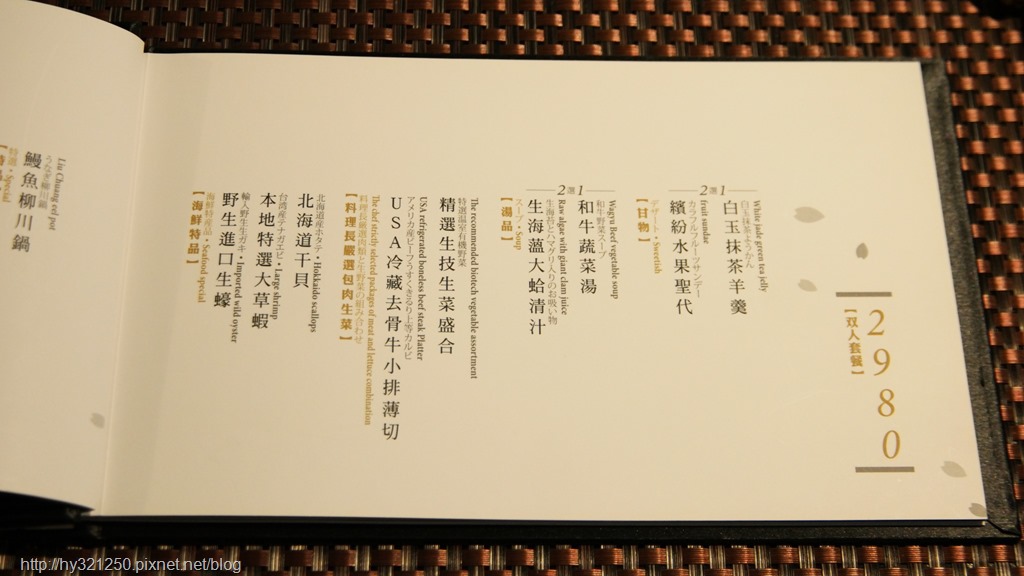 2980
【双人套餐】
2選1
White jade green tea jelly
白玉抹茶ようかん
白玉抹茶羊羹
fruit sundae
カラフルフルーツサンデー
繽紛水果聖代
デザート・Sweetish
【甘物】
2選1
Wagyu Beef vegetable soup
和牛野菜スープ
和牛蔬菜湯
Raw algae with giant clam juice
生海苔とハマグリ入りのお吸い物
生海薀大蛤清汁
スープ・Soup
【湯品】
The recommended biotech vegetable assortment
特選温室有機野菜
精選生技生菜盛合
USA refrigerated boneless beef steak Platter
アメリカ産ビーフうすくきるり上等カルビ
USA冷藏去骨牛小排薄切
The chef strictly selected packages of meat and lettuce combination
料理長厳選肉類と生野菜の組み合わせ
【料理長嚴選包肉生菜】
北海道産ホタテ・Hokkaido scallops
北海道干貝
台湾産テナガエビ・Large shrimp
本地特選大草蝦
輸入野生生ガキ・Imported wild oyster
野生進口生蠔
海鮮特菜品・Seafood special
【海鮮特品】
Liu Chuang eel pot
うなぎ柳川鍋
鰻魚柳川鍋
特選・Special
http://hy321250.pixnet.net/blog